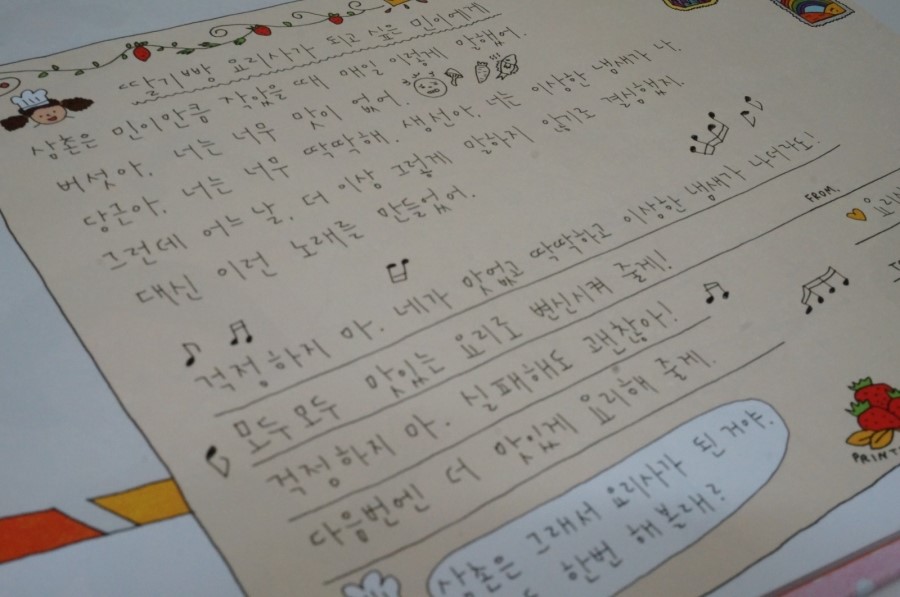 딸기빵 요리사가 되고 싶은 민이에게
삼촌은 민이만큼 작았을 때 매일 이렇게 말했어.
버섯아, 너는 너무 맛이 없어.
당근아, 너는 너무 딱딱해. 생선아, 너는 이상한 냄새가 나.
그런데 어느 날, 더 이상 그렇게 말하지 않기로 결심했지.
대신 이런 노래를 만들었어.
걱정하지 마. 네가 맛없고 딱딱하고 이상한 냄새가 나더라도!
모두모두 맛있는 요리로 변신시켜 줄게!
걱정하지 마. 실패해도 괜찮아!
다음번엔 더 맛있게 요리해 줄게.
삼촌은 그래서 요리사가 된 거야.
한번 해 볼래?
FROM.
PRINT